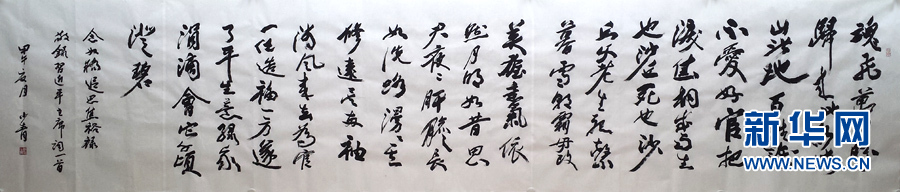 魂飛萬里盼
歸来此水此
山此地百姓誰
不愛好官把
淚焦桐成雨生
也沙丘死也沙
丘父老生死繫
暮雪朝霜毋改
英雄意氣依
然月明如昔思
君夜夜肝膽長
如洗路漫漫其
修遠矣两袖
清風来去為官
一任造福一方遂
了平生意绿我
涓滴會它千頃
澄碧
念奴嬌追思焦裕禄
敬録習近平主席詞一首
甲午夏月
新华网
WWW.NEWS.CN